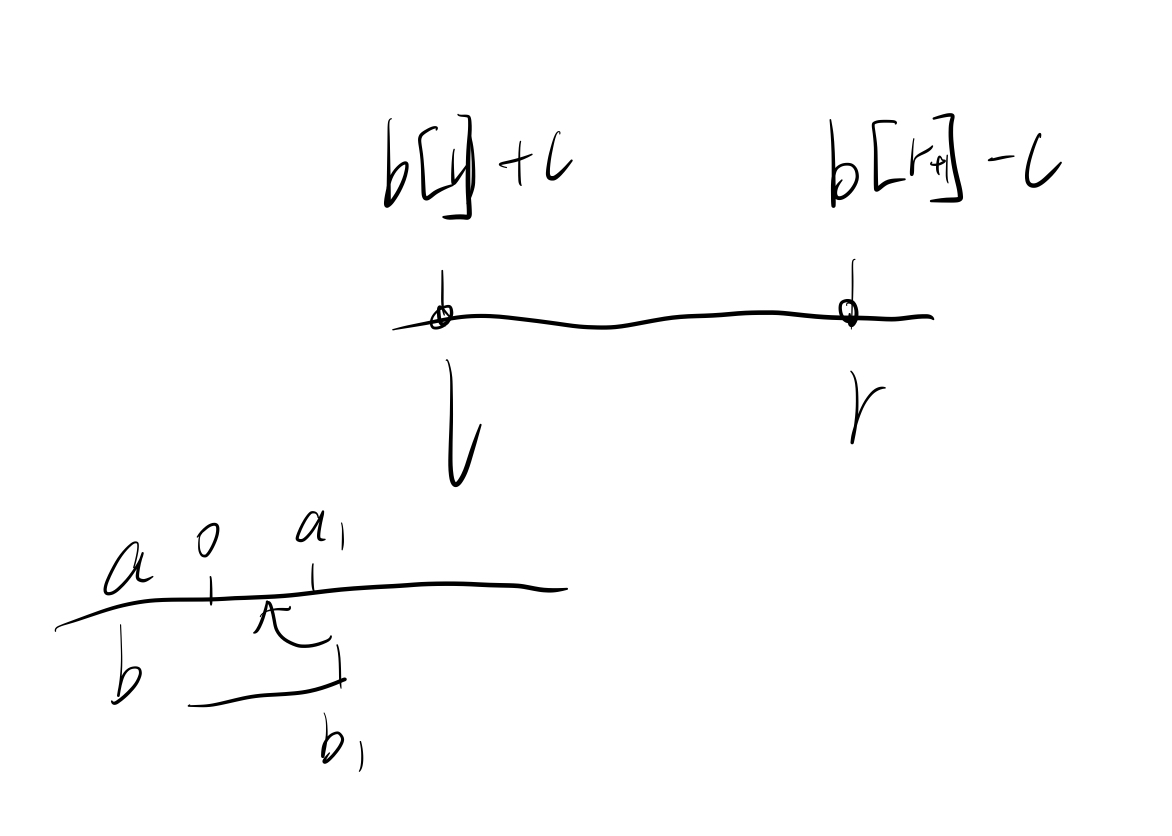 b[l]+c b[r+1]-c
l r
a 0 a1
b
b1